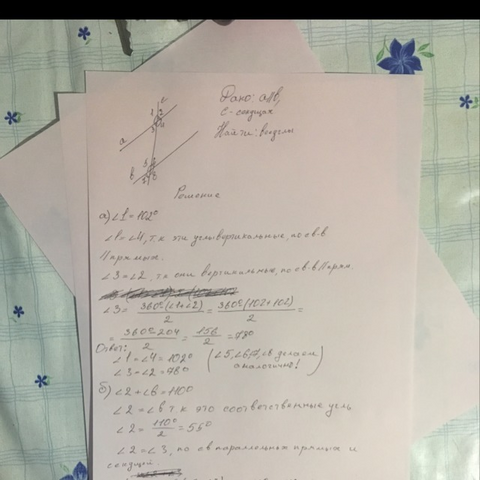 Дано: a||b,
c-секущая
Найти: все углы
c
1 2
3 4
a
5 6
7 8
b
Решение
а) ∠1=102°
∠1=∠4, т.к эти углы вертикальные, по св-в
Пар.прямых.
∠3=∠2, т.к они вертикальные, по св. в Парал.
∠3= 360°-(∠1+∠2)/2 = 360°-(102+102)/2 =
= 360°-204/2 = 156/2 = 78°
Ответ:
∠1=∠4=102° (∠5,∠6,7,∠8 делаем
∠3=∠2=78° аналогично!)
б) ∠2+∠6=110°
∠2=∠6 т.к это соответственные углы
∠2= 110°/2 =56°
∠2=∠3, по св параллельных прямых и
секущей.